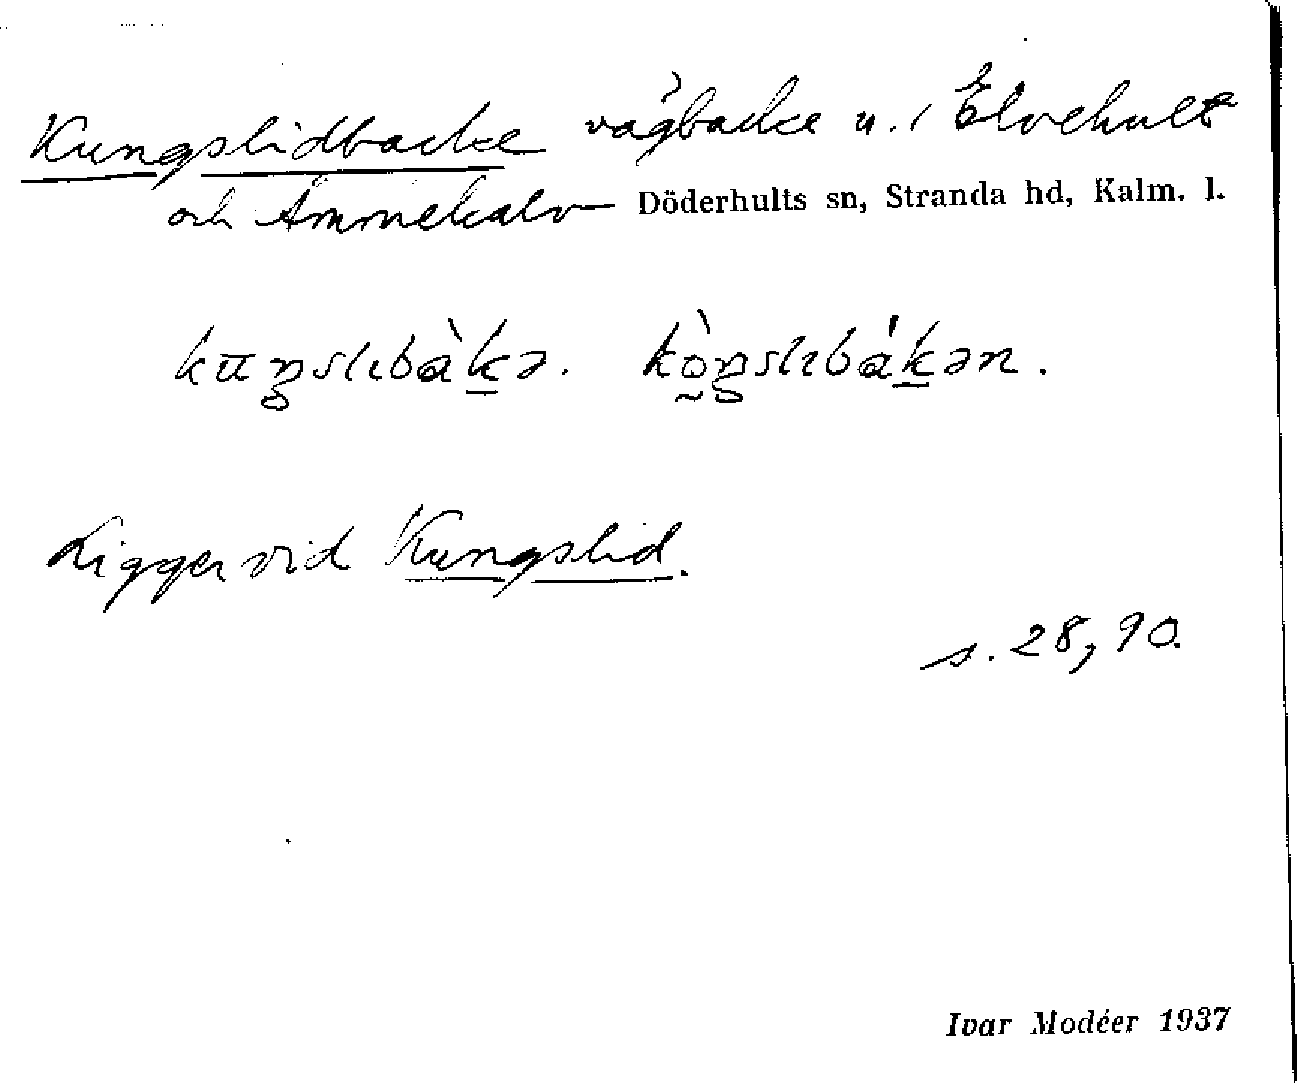 Kungslidbacke vägbacke u. i Elvehult
och Ammekalv Döderhults sn, Stranda hd, Kalm. l.
kūŋslıbàkə. kòŋslıbákən.
Ligger vid Kungslid.
s. 28, 90.
Ivar Modéer 1937